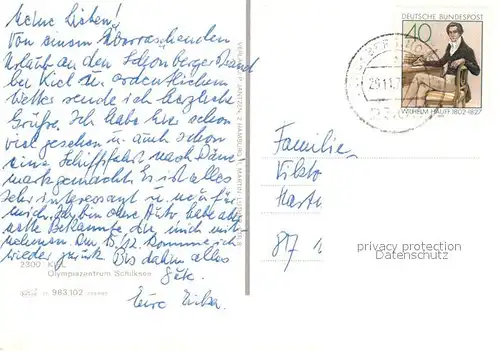 Meine Lieben!
Von einem überraschenden
Urlaub an den Schönberger Strand
bei Kiel u. ordentlichem
Wetter sende ich herzliche
Grüße. Ich habe hier schon
viel gesehen u. auch schon
eine Schiffahrt nach Däne-
mark gemacht. Es ist alles
sehr interessant u. neu für
mich. Ich bin ohne Auto, habe aber
nette Bekannte die mich mit-
nehmen. Am 15.12. komme ich
wieder zurück. Bis dahin alles
Gute.
Eure
2300 KIEL
Olympiazentrum Schilksee
983.102
VERLAG P. JANTZEN, 2 HAMBURG
DEUTSCHE BUNDESPOST
40
WILHELM HAUFF 1802-1827
Familie
Martin
privacy protection
Datenschutz